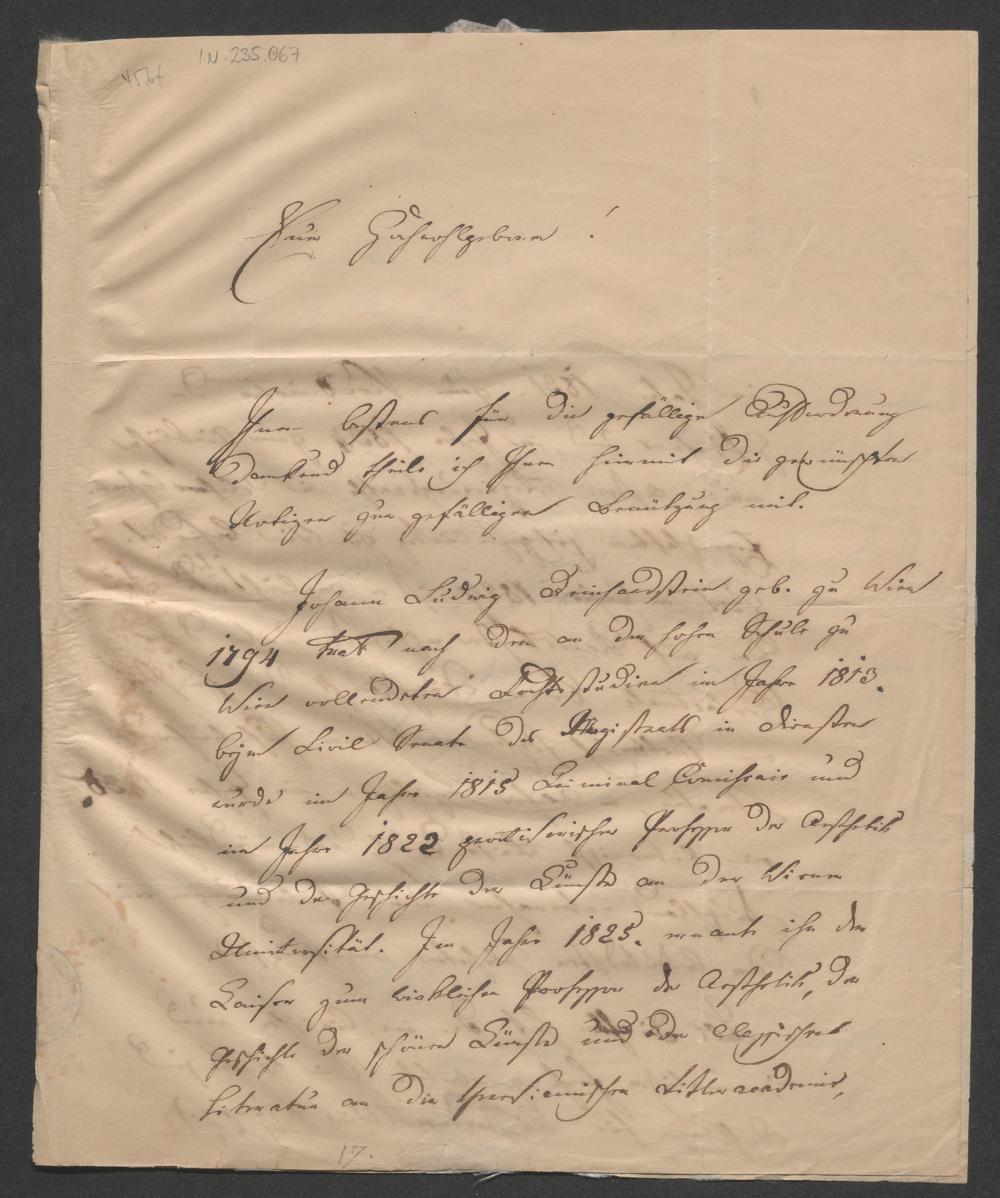 I.N. 235.067
Euer Hochwohlgeboren!
Ihnen bestens für die gefällige Aufforderung
dankend theile ich Ihnen hiermit die gewünschten
Notizen zur gefälligen Benützung mit.
Johann Ludwig Deinhardstein geb. zu Wien
1794 trat nach den an der hohen Schule zu
Wien vollendeten Rechtsstudien im Jahre 1813.
beym Civil Senate des Magistrats in Diensten
wurde im Jahre 1815 Criminal Comissair und
im Jahre 1822 provisorischer Professor der Aesthetik
und der Geschichte der Künste an der Wiener
Universität. Im Jahre 1825. ernante ihn der
Kaiser zum wirklichen Professor der Aesthetik, der
Geschichte der schönen Künste und der classischen
Literatur an die theresianischen Ritteracademie,
17.